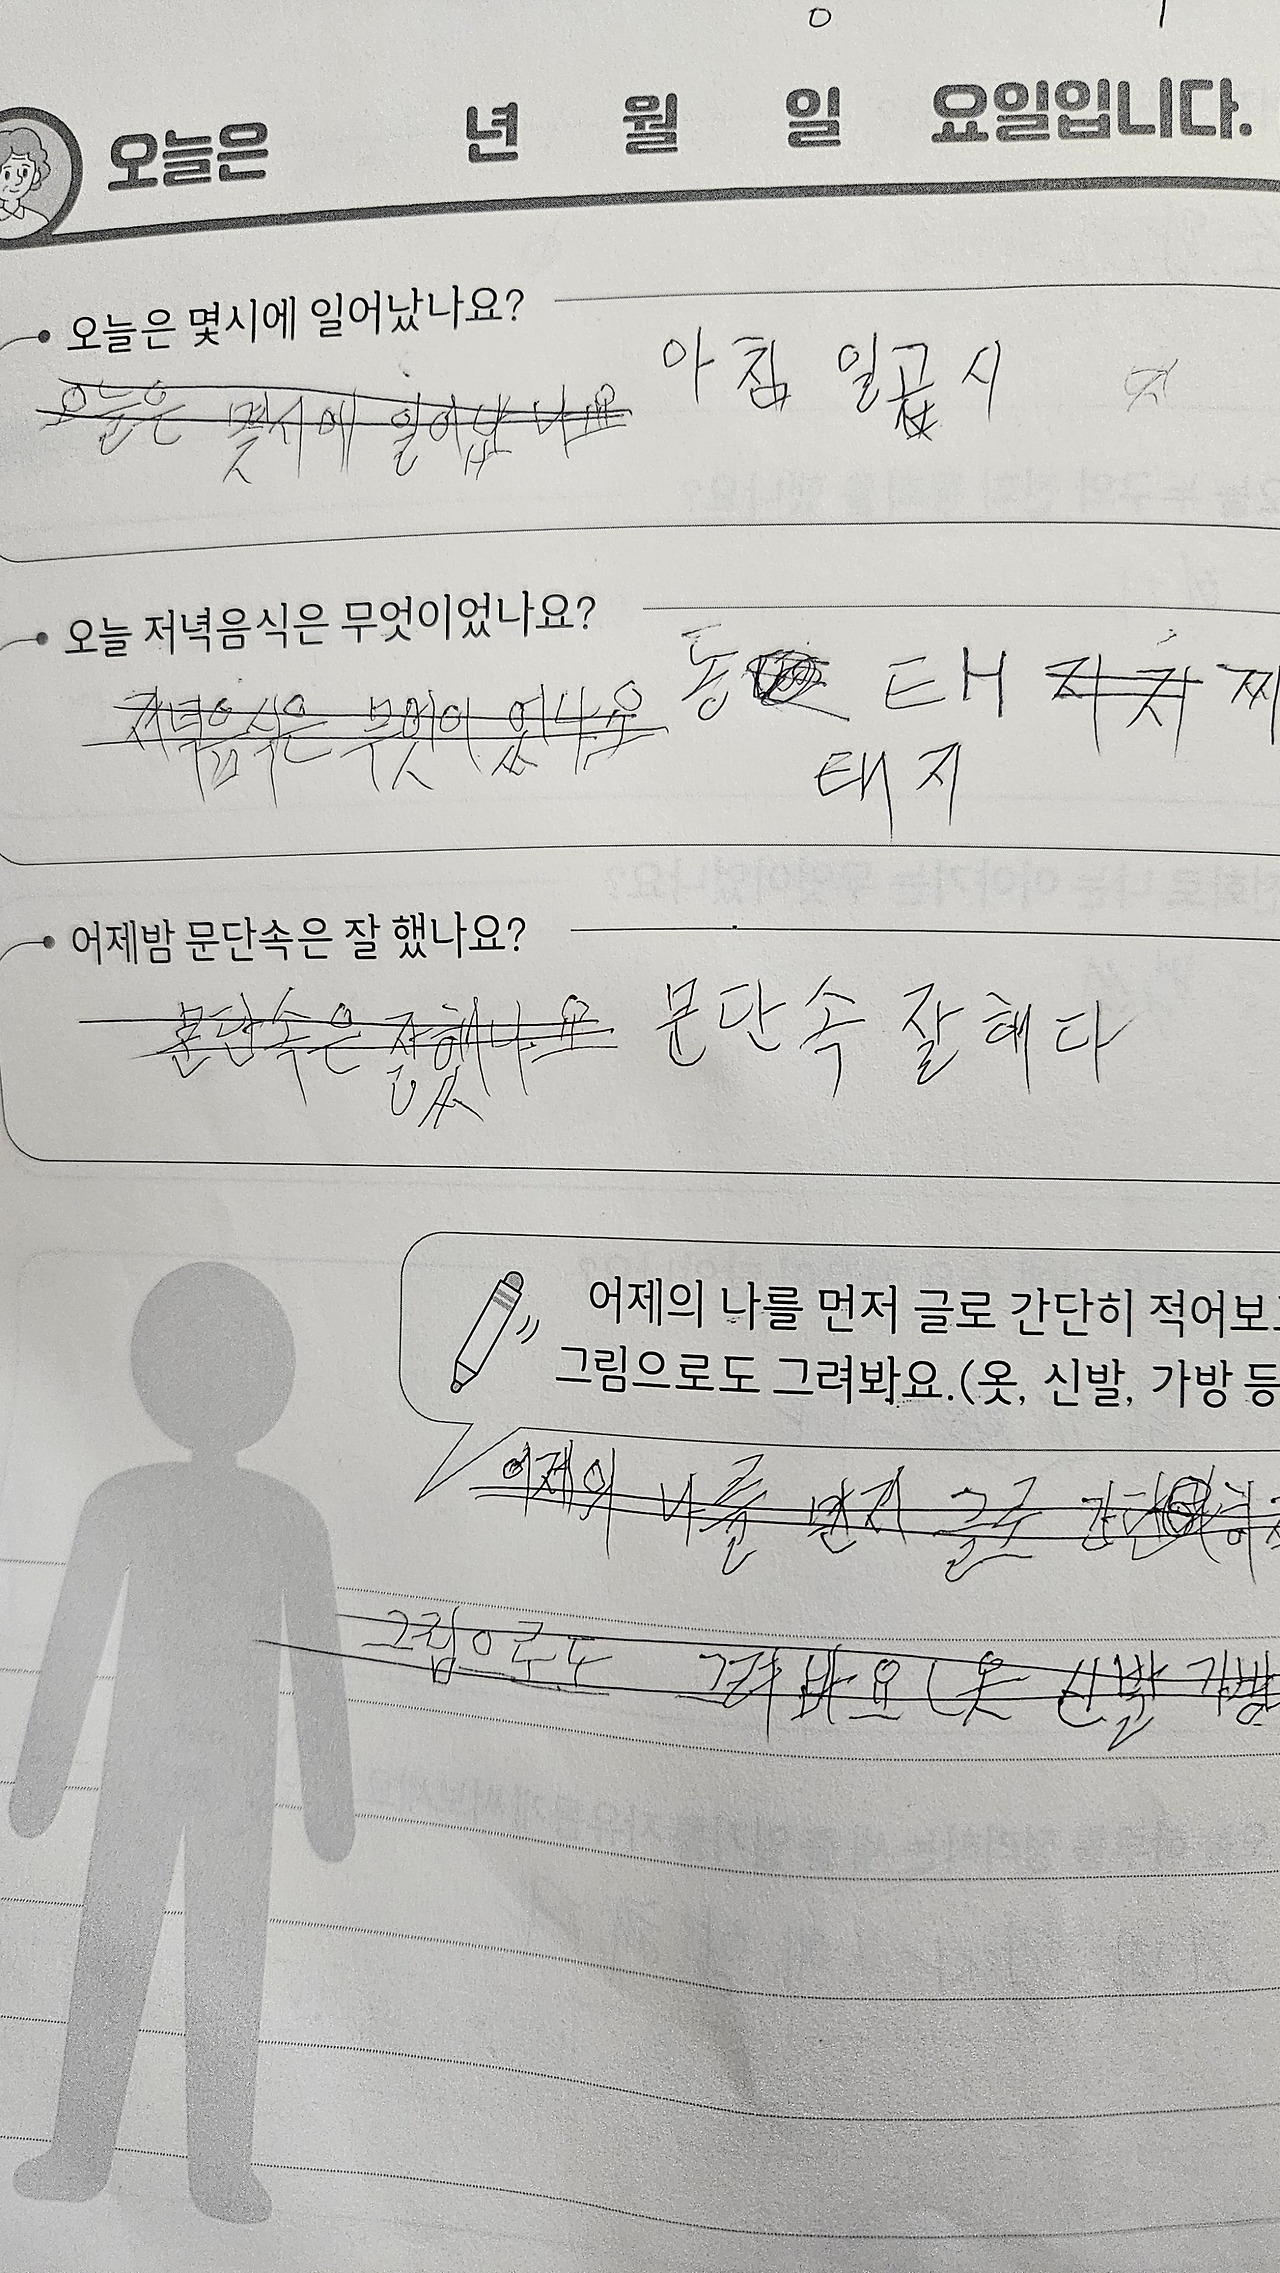 오늘은 년 월 일 요일입니다.
오늘은 몇시에 일어났나요?
아침 일곱시
오늘은 몇시에 일어났나요
오늘 저녁음식은 무엇이었나요?
동 태 찌
저녁음식은 무엇이었나요
태지
어제밤 문단속은 잘 했나요?
문단속은 잘했나요 문단속 잘해다
어제의 나를 먼저 글로 간단히 적어보
그림으로도 그려봐요.(옷, 신발, 가방 등
어제의 나를 먼저 글로 간단히
그림으로도 그려바요(옷 신발 가방